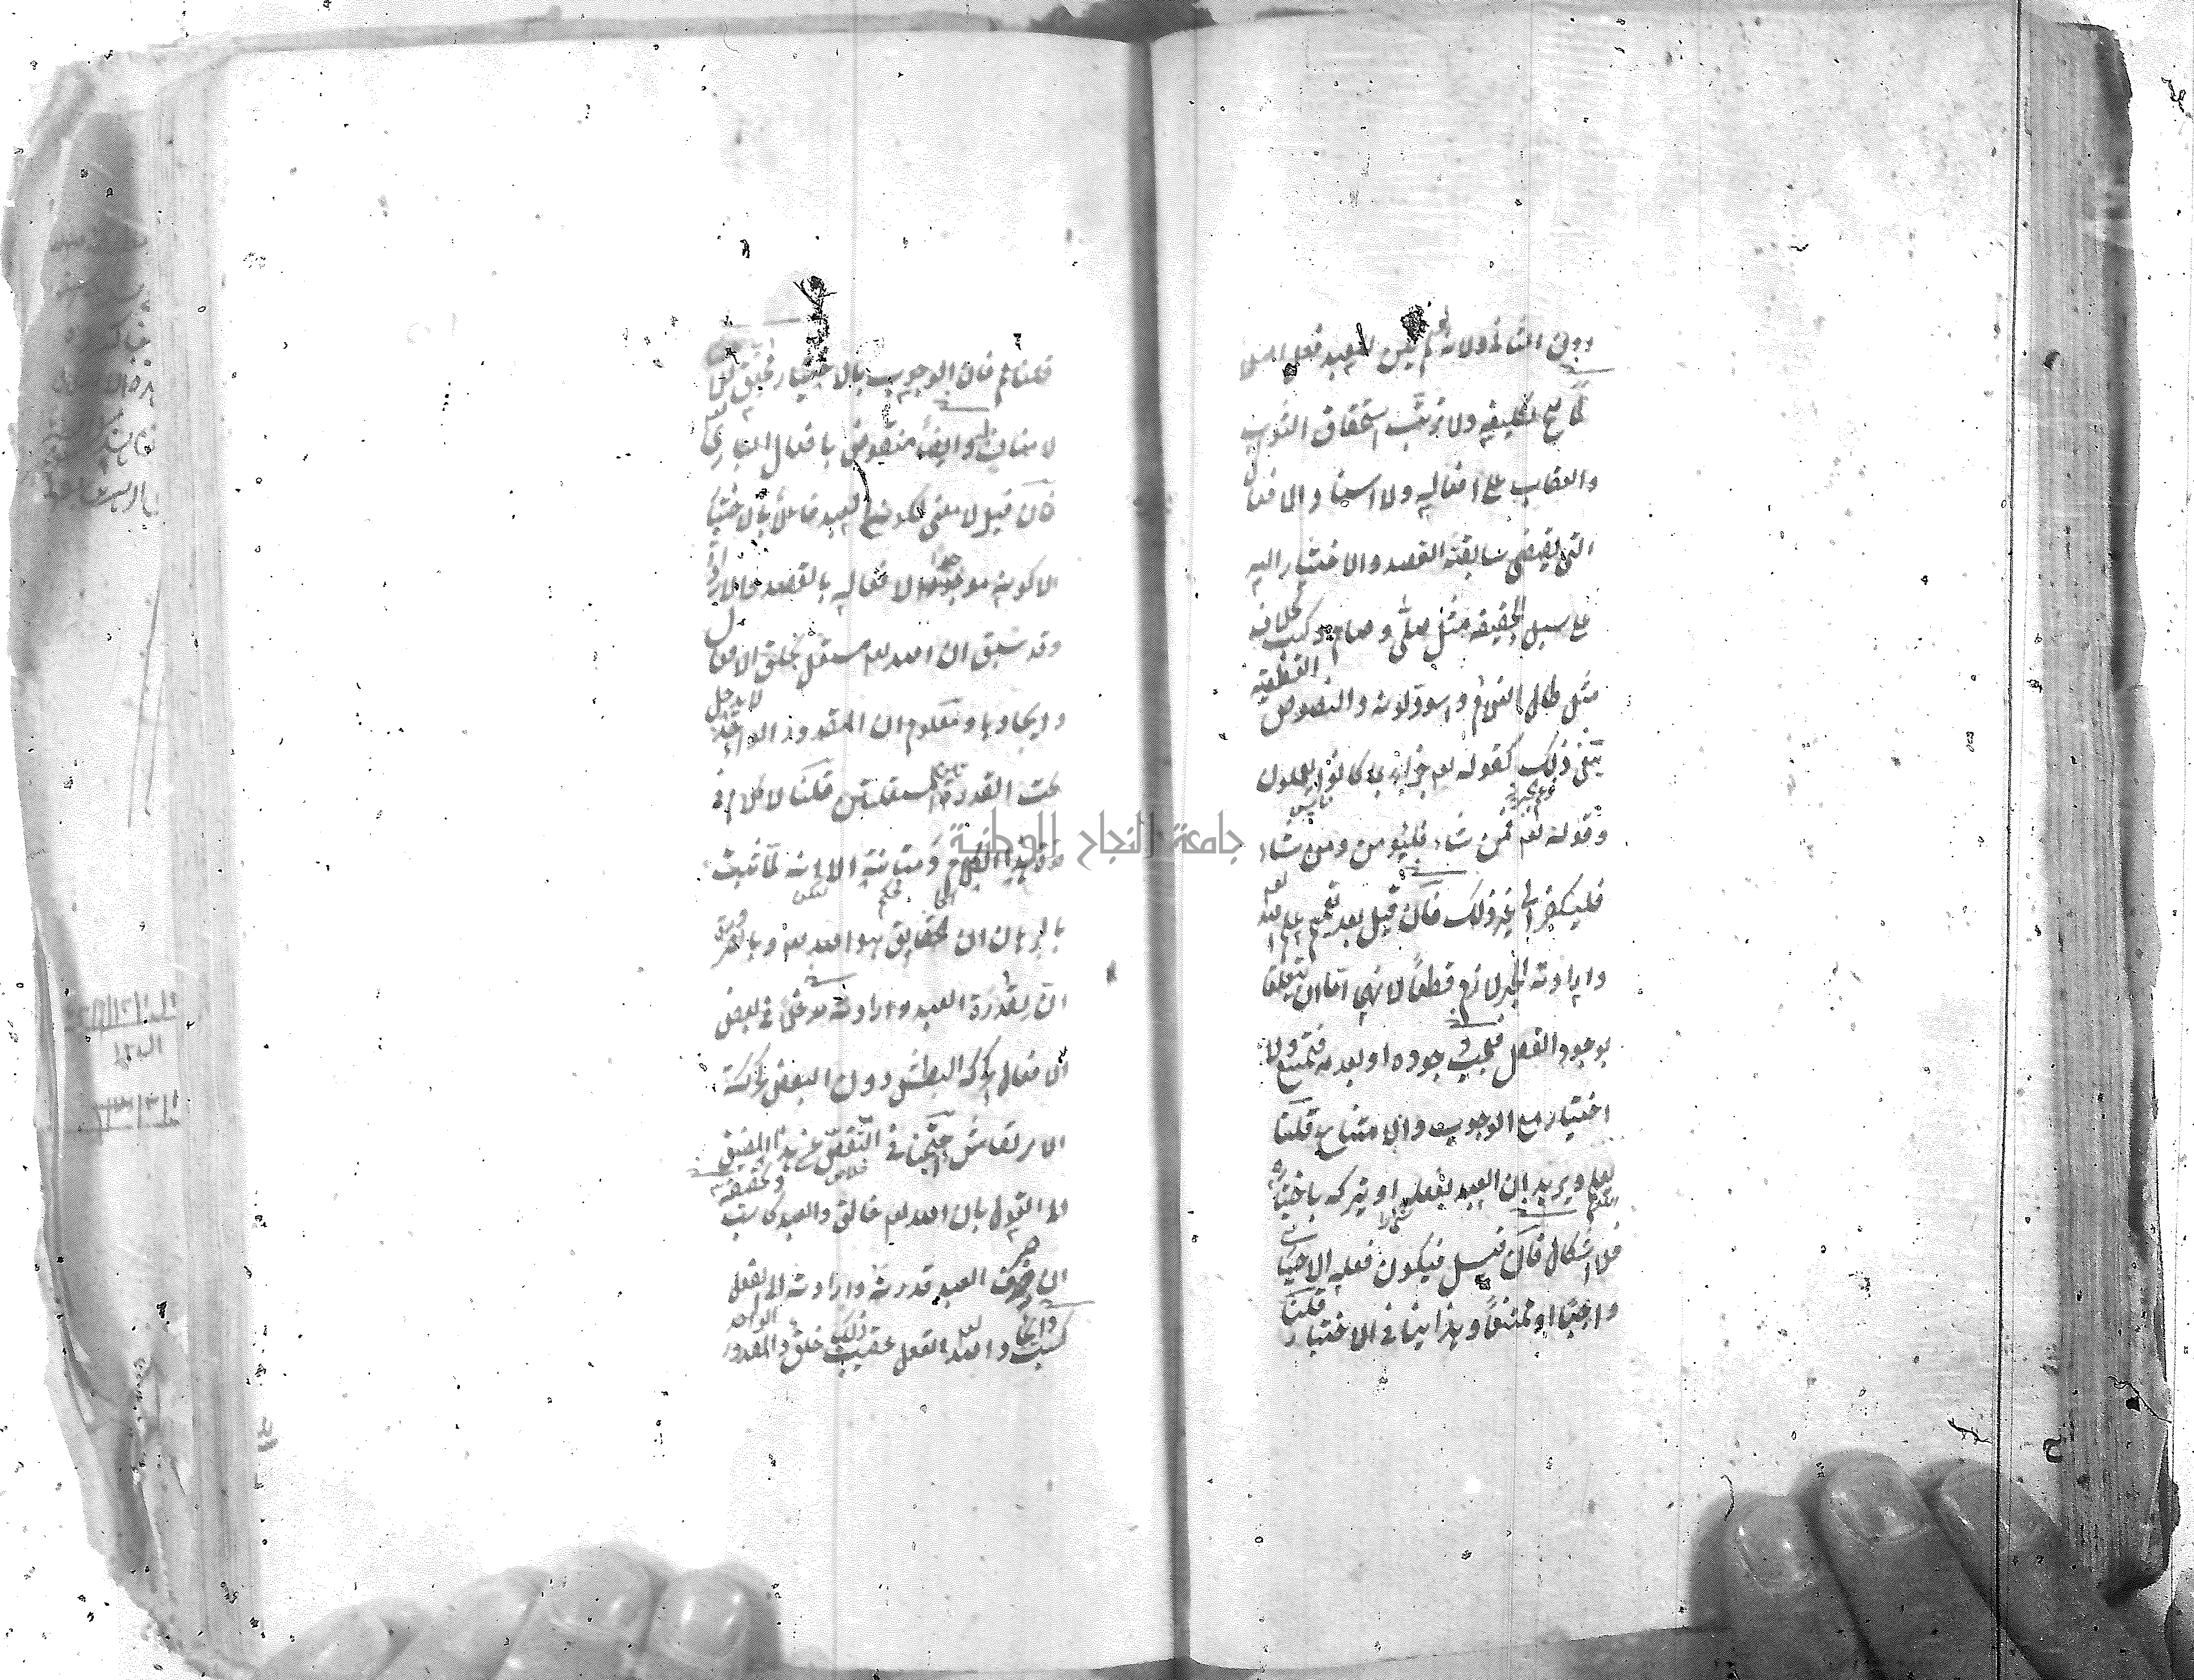 دون الثاني ولانه لو لم يكن للعبد فعل اصلا
لما صح تكليفه ولا ترتب استحقاق الثواب
والعقاب على افعاله ولا اسناد الافعال
التي تقتضي سابقة القصد والاختيار اليه
على سبيل الحقيقة مثل صلى وصام وكتب بخلاف
مثل طال الغلام واسود لونه والنصوص القطعية
تنفي ذلك كقوله تع جزاء بما كانوا يعملون
وقوله تع فمن شاء فليؤمن ومن شاء
فليكفر الى غير ذلك فان قيل بعد تعميم علم الله تع
وارادته الجبر لازم قطعا لانهما اما ان يتعلقا
بوجود الفعل فيجب وجوده او بعدمه فيمتنع ولا
اختيار مع الوجوب والامتناع قلنا
يعلم ويريد ان العبد يفعله او يتركه باختياره
فلا اشكال فان قيل فيكون فعله الاختياري
واجبا او ممتنعا وهذا ينافي الاختيار قلنا
قلنا مم فان الوجوب بالاختيار محقق للاختيار
لا مناف وايضا منقوض بافعال الباري تع
فان قيل لا معنى لكون العبد فاعلا بالاختيار
الا كونه موجدا لافعاله بالقصد والارادة
وقد سبق ان الله تع مستقل بخلق الافعال
وايجادها ومعلوم ان المقدور الواحد لا يدخل
تحت القدرتين المستقلتين قلنا لا كلام في
قوة هذا الكلام ومتانته الا انه لما ثبت
بالبرهان ان الخالق هو الله تع وبالضرورة
ان لقدرة العبد وارادته مدخلا في بعض
الافعال كحركة البطش دون البعض كحركة
الارتعاش احتجنا في التفصي عن هذا المضيق
الى القول بان الله تع خالق والعبد كاسب وتحقيقه
ان صرف العبد قدرته وارادته الى الفعل
كسب وايجاد الله تع الفعل عقيب ذلك خلق والمقدور الواحد
جامعة النجاح الوطنية